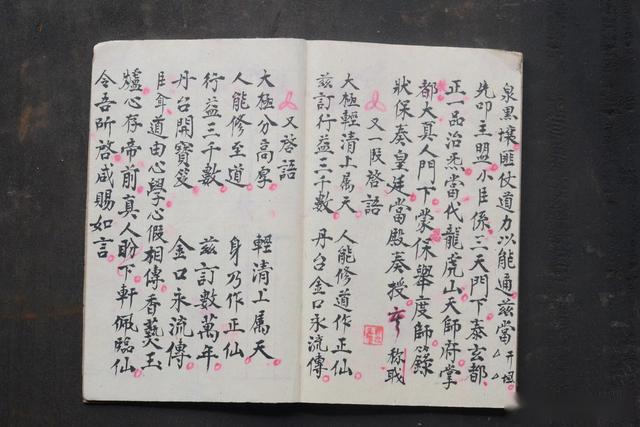 泉黑壤匪仗道力以能通茲當
先叩主盟小臣係三天門下泰玄都
正一品治炁當代龍虎山天師府掌
都大真人門下蒙保舉度師籙
狀保奏皇廷當殿奏授 称職
又一段啓語
大極輕清上属天 人能修道作正仙
茲訂行益三千數 丹台金口永流傳
又啓語
大極分高厚 輕清上属天
人能修至道 身乃作正仙
行益三千數 茲訂數萬年
丹台開寶笈 金口永流傳
臣 道由心學心假相傳香爇玉
爐心存帝前真人盼下軒佩臨仙
令吾所啓咸賜如言